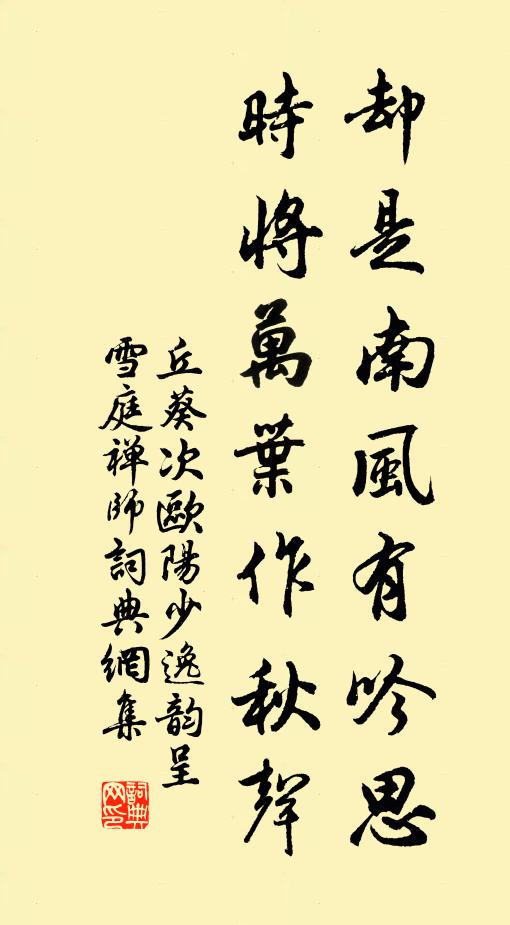 却是南風有吟思
時將萬葉作秋聲
丘葵次歐陽少逸韵呈
雪庭禅師詞典網集
詞典
网印